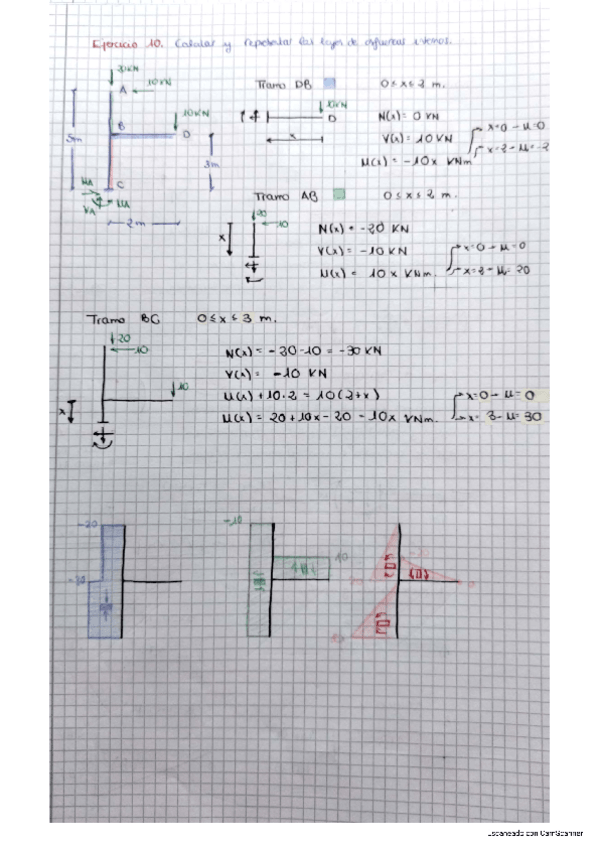 Ejercicio 10. Calcular y representar las leyes de esfuerzos internos.
20KN
A
10KN
10KN
B
D
5m
3m
C
HA
VA
MA
2m
Tramo DB
0 ≤ x ≤ 2 m.
10KN
D
x
N(x) = 0 KN
V(x) = 10 KN
M(x) = -10x KNm
x=0 → M=0
Tramo AB
0 ≤ x ≤ 2 m.
20
10
x
N(x) = -20 KN
V(x) = -10 KN
M(x) = 10x KNm.
x=0 → M=0
x=2 → M=20
Tramo BC
0 ≤ x ≤ 3 m.
20
10
10
x
N(x) = -20-10 = -30 KN
V(x) = -10 KN
M(x) + 10·2 = 10(2+x)
M(x) = 20+10x-20 = 10x KNm.
x=0 → M=0
x=3 → M=30
-20
-30
-10
10
-20
Escaneado con CamScanner